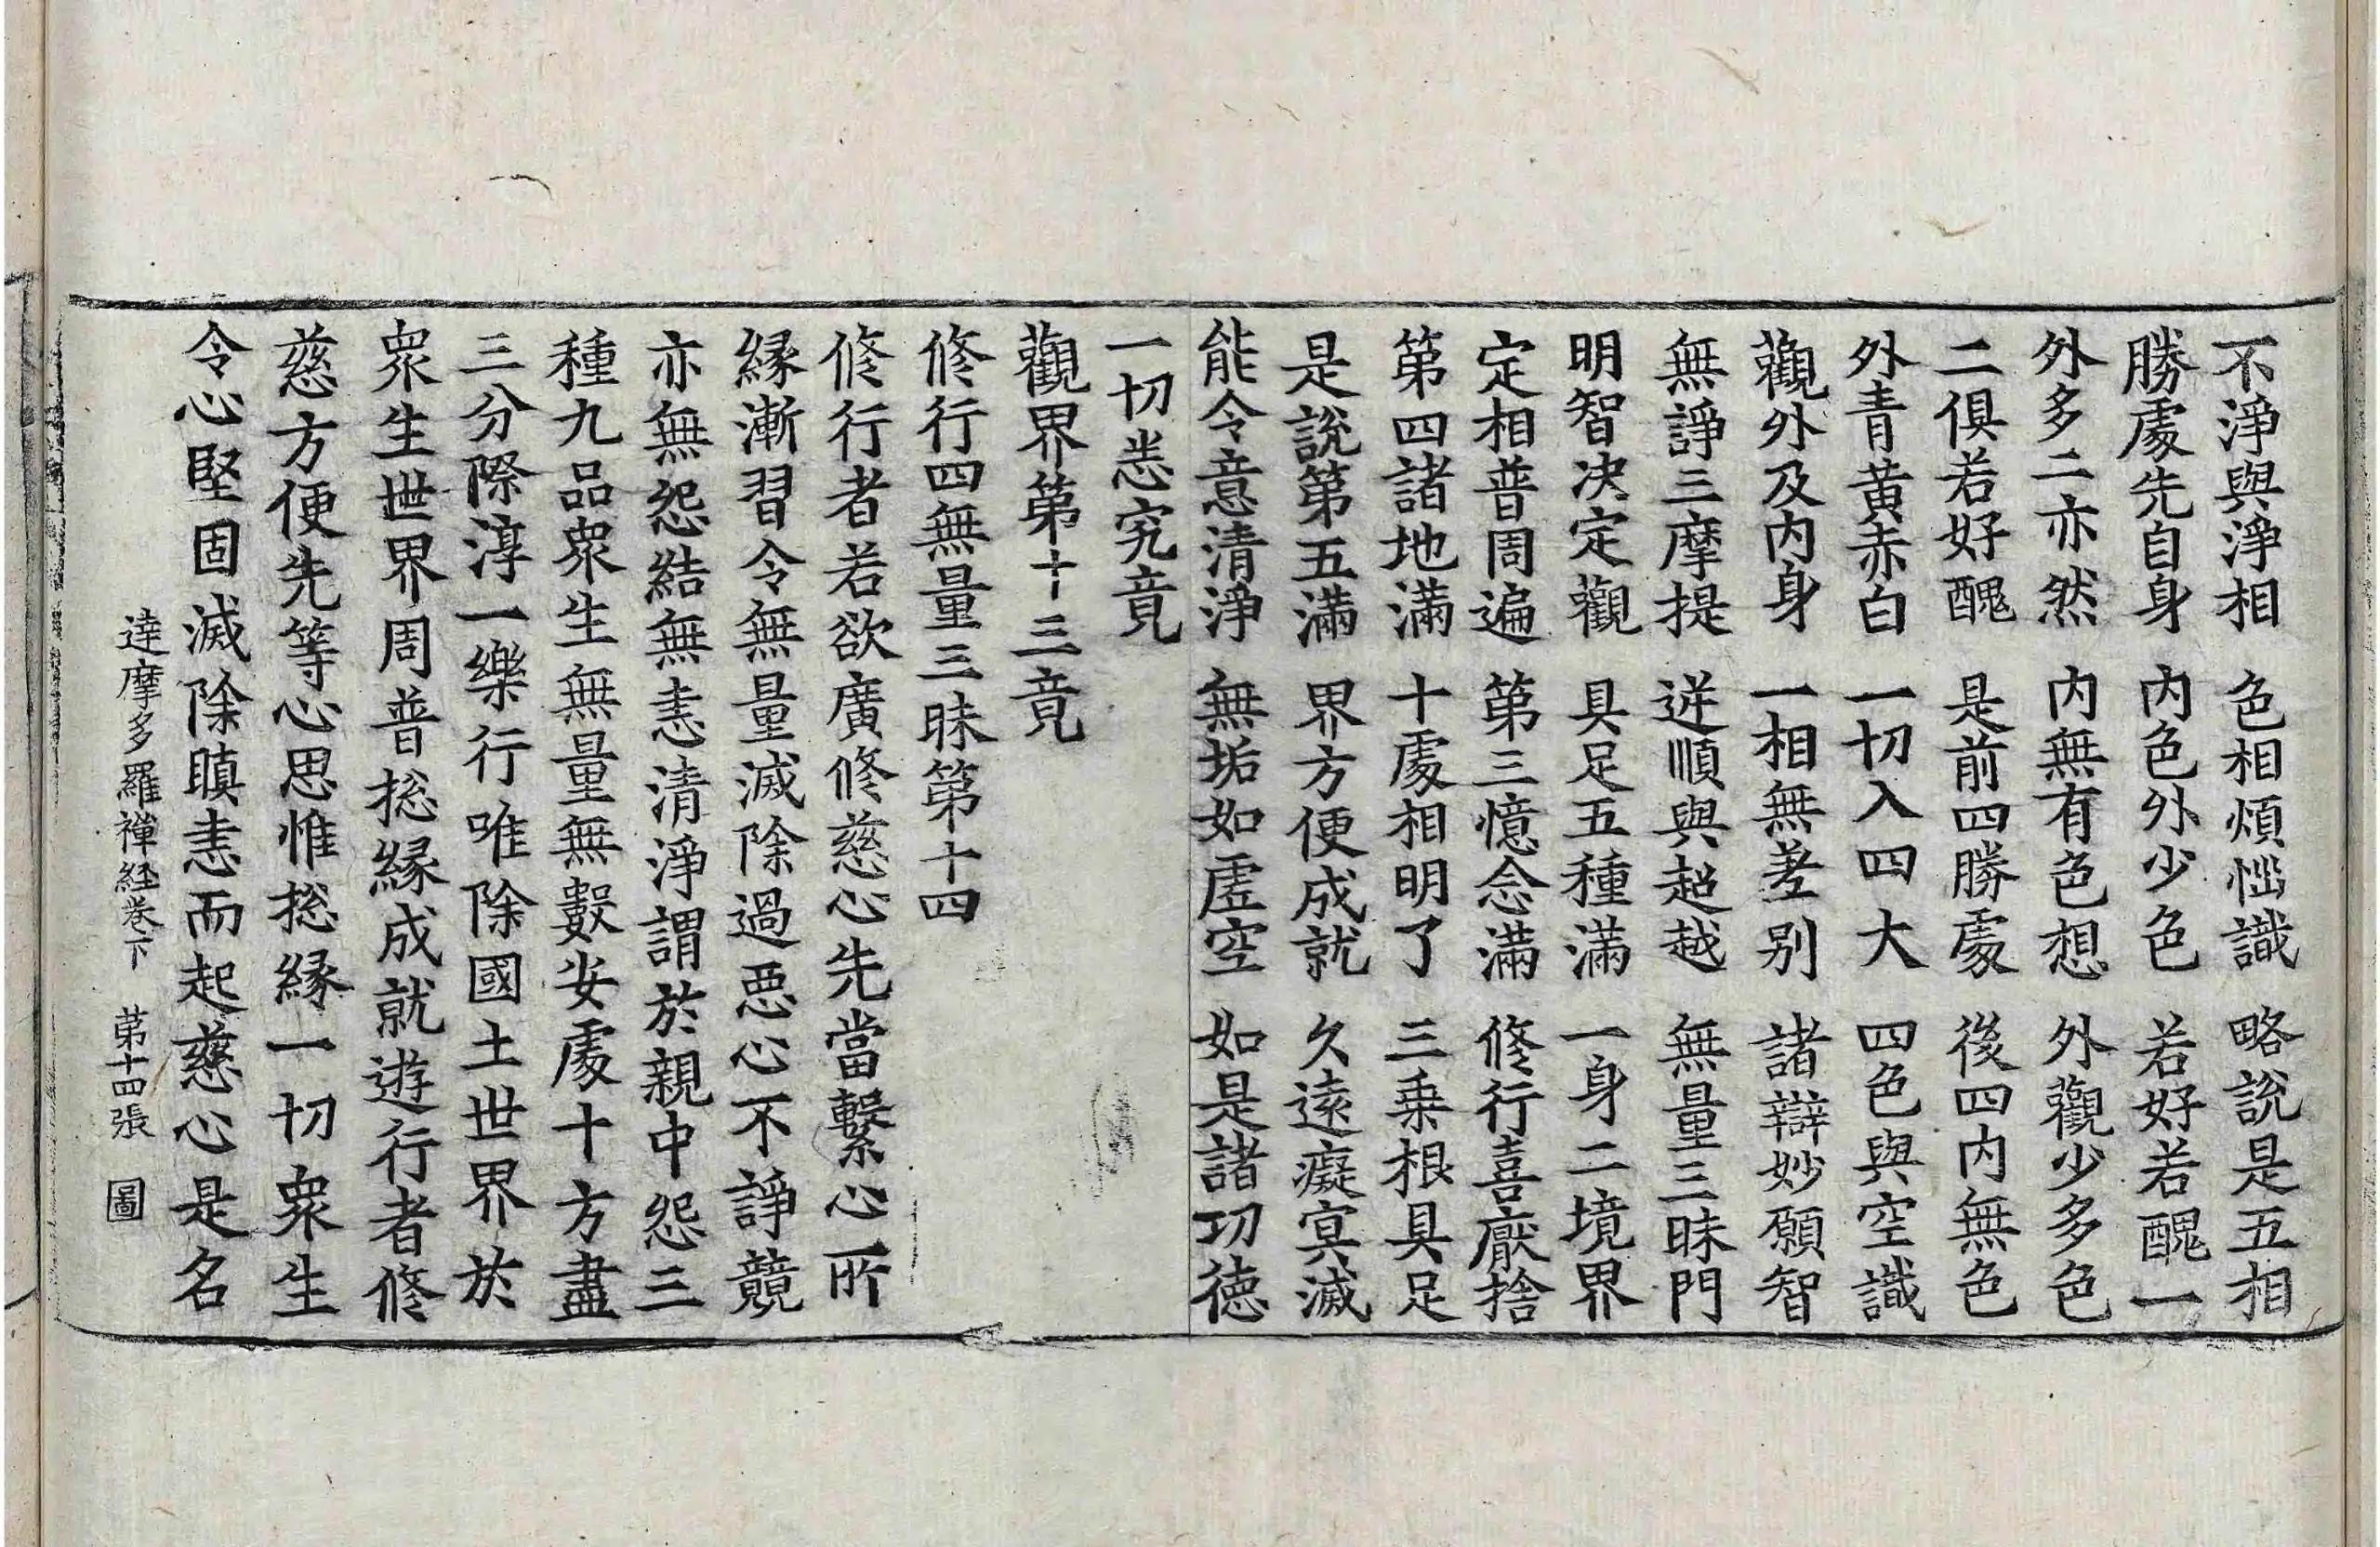 不淨與淨相　色相煩惱識　略說是五相
勝處先自身　内色外少色　若好若醜一
外多二亦然　内無有色想　外觀少多色
二俱若好醜　是前四勝處　後四内無色
外青黄赤白　一切入四大　四色與空識
觀外及内身　一相無差别　諸辯妙願智
無諍三摩提　逆順與超越　無量三昧門
明智决定觀　具足五種滿　一身二境界
定相普周遍　第三憶念滿　修行喜厭捨
第四諸地滿　十處相明了　三乗根具足
是說第五滿　界方便成就　久遠癡冥滅
能令意清淨　無垢如虚空　如是諸功德
一切悉究竟
觀界第十三竟
修行四無量三昧第十四
修行者若欲廣修慈心先當繫心所
縁漸習令無量滅除過惡心不諍競
亦無怨結無恚清淨謂於親中怨三
種九品衆生無量無數安處十方盡
三分際淳一樂行唯除國土世界於
衆生世界周普揔縁成就遊行者修
慈方便先等心思惟揔縁一切衆生
令心堅固滅除瞋恚而起慈心是名
達摩多羅禪経卷下　第十四張　圖